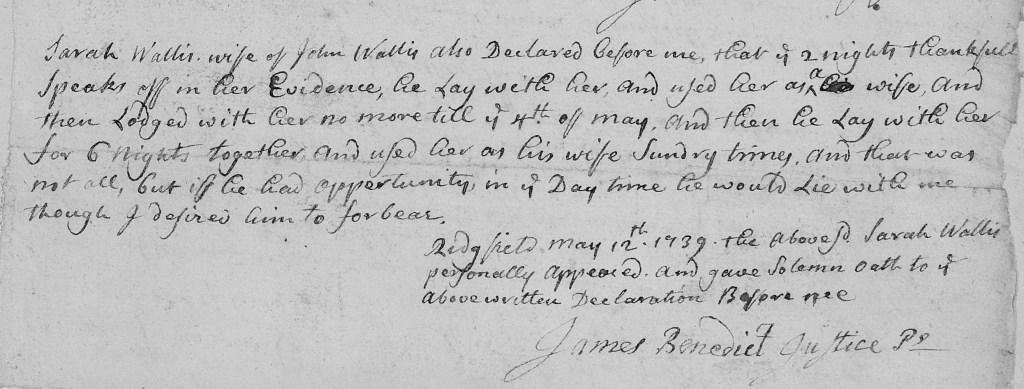 Sarah Wallis. wife of John Wallis also Declared before me, that ye 2 nights thankfull
speaks off in her Evidence, he Lay with her, and used her as a wife, and
then Lodged with her no more till ye 4th off may, and then he Lay with her
for 6 nights together, and used her as his wife Sundry times, and that was
not all, but iff he had opportunity in ye Day time he would Lie with me
though I desired him to forbear.
Ridgfield may 12th. 1739. the abovesd. Sarah Wallis
personally appeared. and gave Solemn oath to ye
abovewritten Declaration Before mee
James Benedict Justice Ps